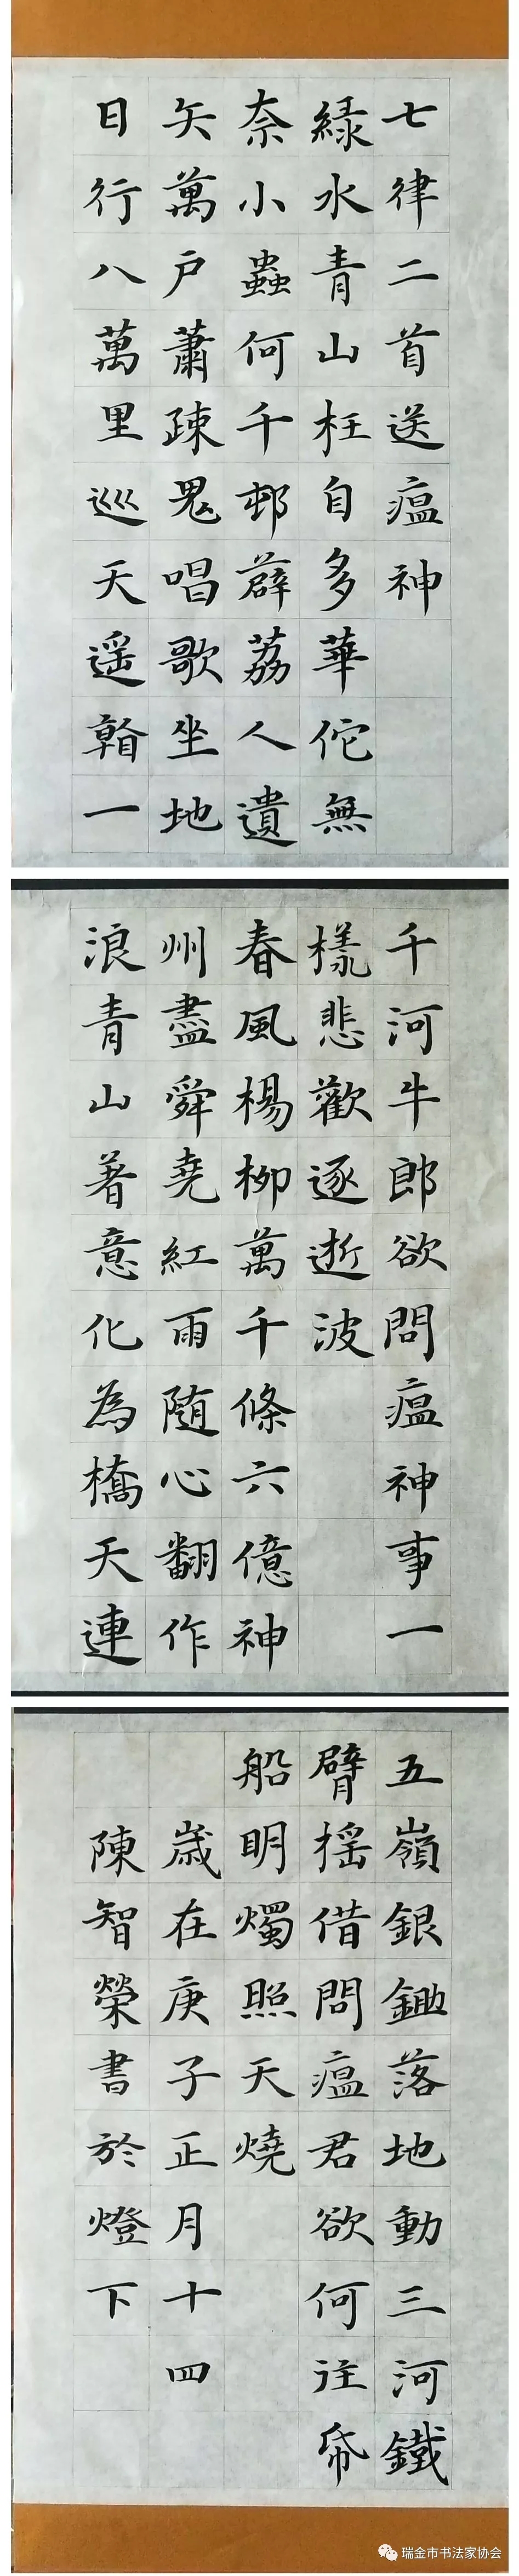 七律二首送瘟神
緑水青山枉自多華佗無
奈小蟲何千邨薜荔人遺
矢萬戶蕭疎鬼唱歌坐地
日行八萬里巡天遥看一
千河牛郎欲問瘟神事一
樣悲歡逐逝波
春風楊柳萬千條六億神
州盡舜堯紅雨随心翻作
浪青山著意化為橋天連
五嶺銀鋤落地動三河鐵
臂揺借問瘟君欲何往帋
船明燭照天燒
歲在庚子正月十四
陳智榮書於燈下
瑞金市书法家协会